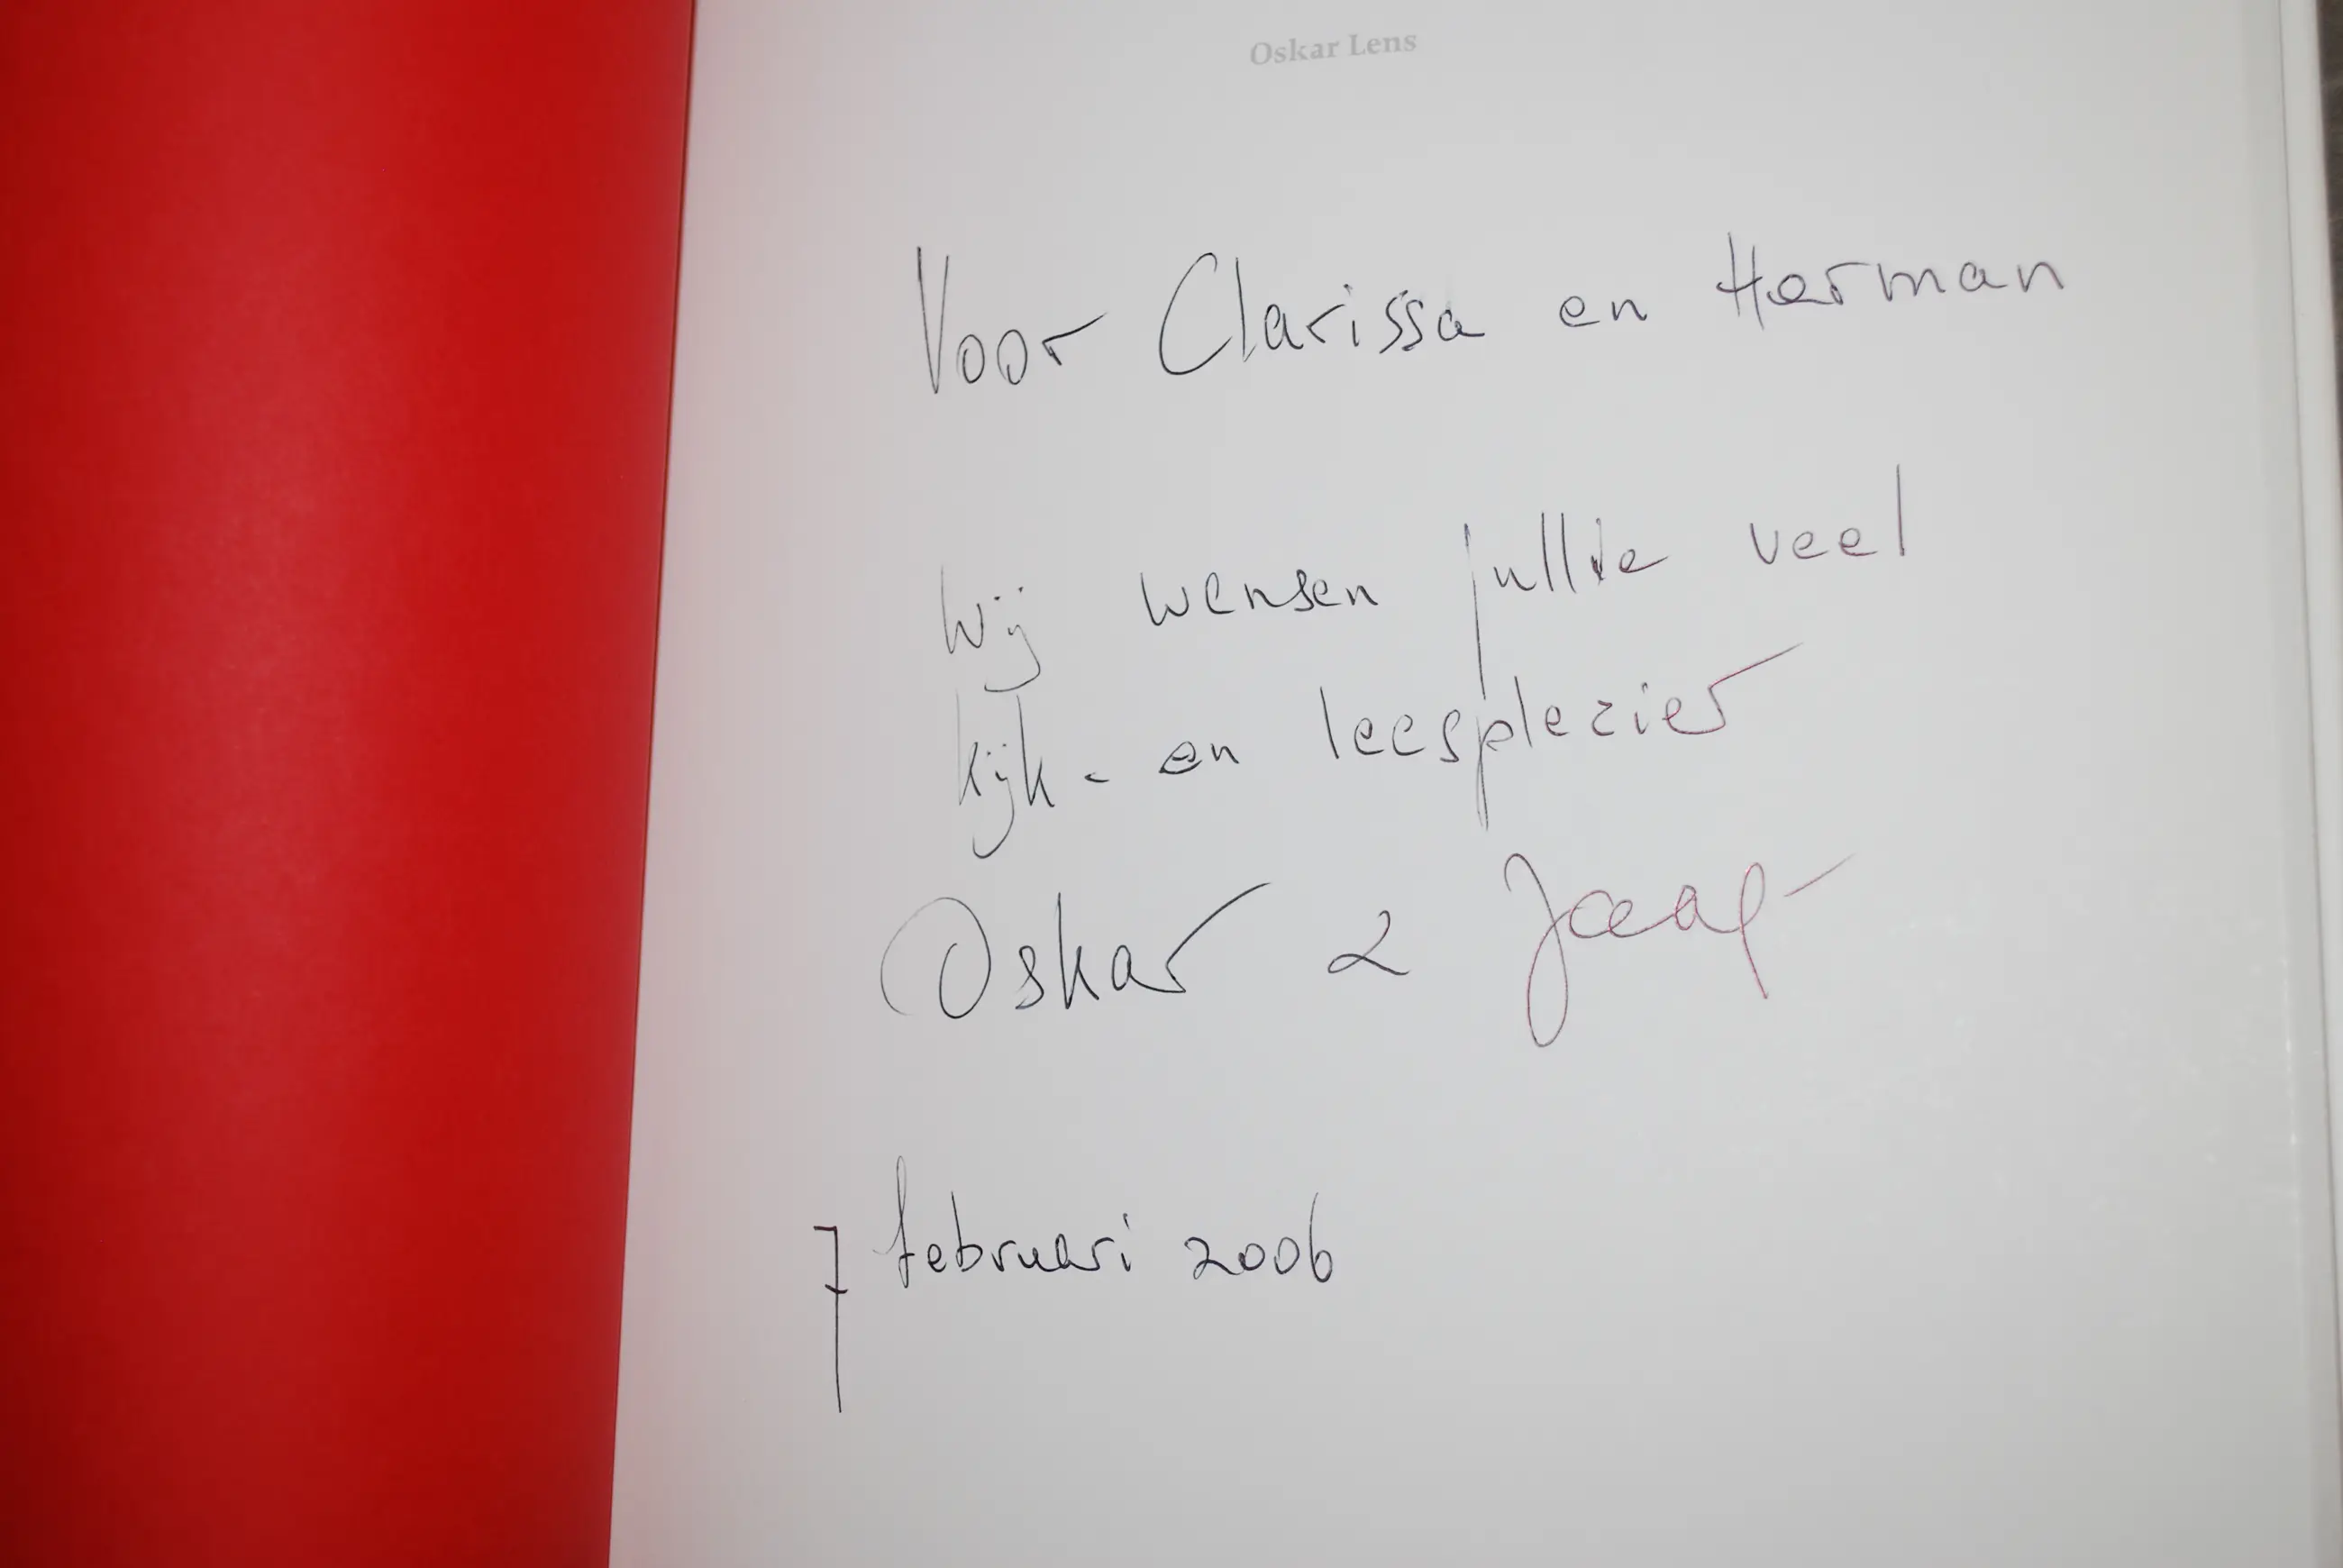 Oskar Lens
Voor Clarissa en Herman
Wij wensen jullie veel
kijk- en leesplezier
Oskar & Jaap
7 februari 2006